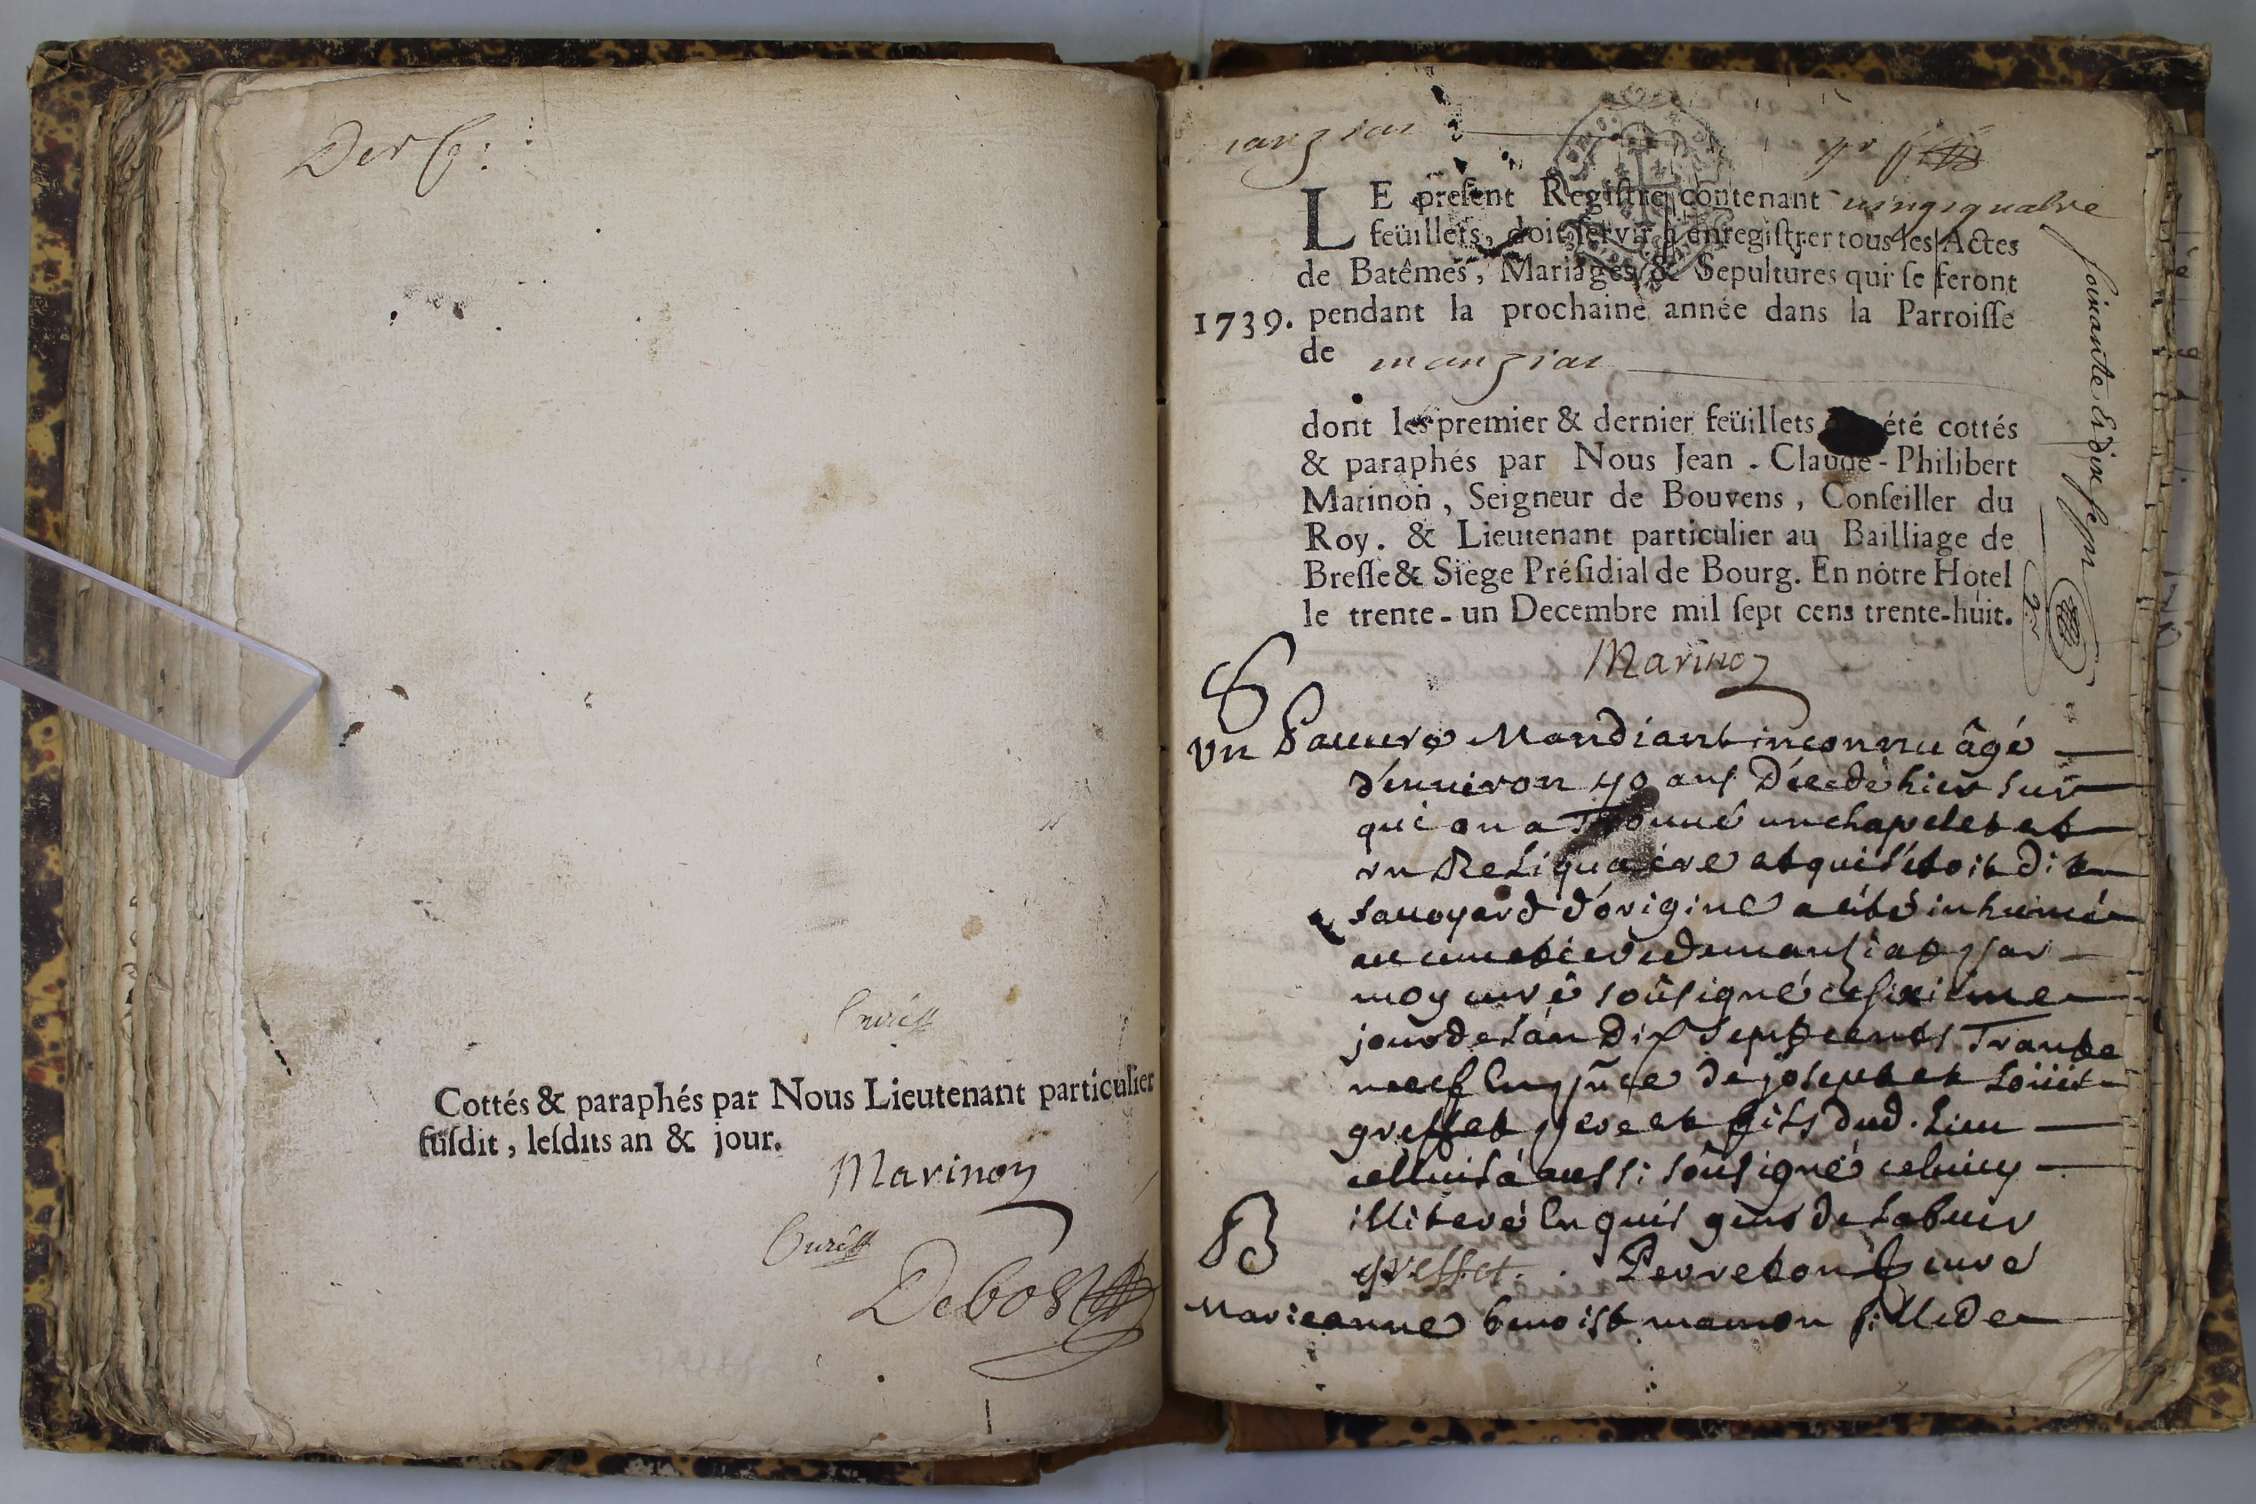 Der
Curé
Cottés & paraphés par Nous Lieutenant particulier
susdit, lesdits an & jour.
Marinon
Curé
Debost
manziat
LE present Registre contenant vingt quatre
feüillets, doit servir à enregistrer tous les Actes
de Batêmes, Mariages & Sepultures qui se feront
1739. pendant la prochaine année dans la Parroisse
de manziat
dont les premier & dernier feüillets été cottés
& paraphés par Nous Jean - Claude - Philibert
Marinon, Seigneur de Bouvens, Conseiller du
Roy. & Lieutenant particulier au Bailliage de
Bresse & Siège Présidial de Bourg. En nôtre Hôtel
le trente-un Decembre mil sept cens trente-huit.
Marinon
soixante & dix sept
S
Vn Pauure Mandiant inconnu âgé
d'enuiron 40 ans décedé hier sur
qui on a Trouué un chapelet et
vn Reliquaire et qui s'étoit dit
sauoyard d'origine a été inhumé
au cimetiere de manziat par
moy curé soûsigné ce sixieme
jour de l'an Dix sept cents Trante
neuf En pñce de joseph et Loüis
greffet pere et fils dud. Lieu
celluilà aussi soûsigné celuicy
illiteré Enquis gens de Labeur
greffet. Perreton curé
B
Marieanne benoist mamon fille de